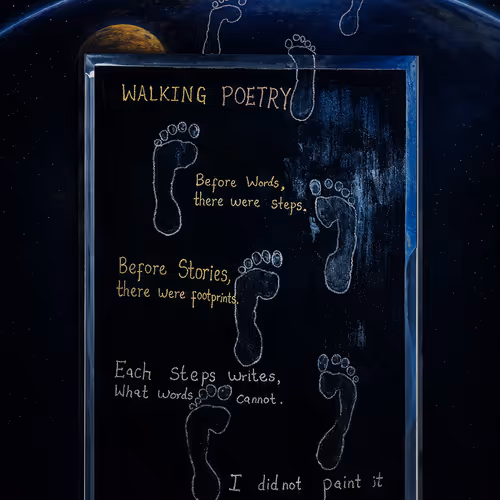 WALKING POETRY
Before Words,
there were steps.
Before Stories,
there were footprints.
Each Steps writes,
What words cannot.
I did not paint it